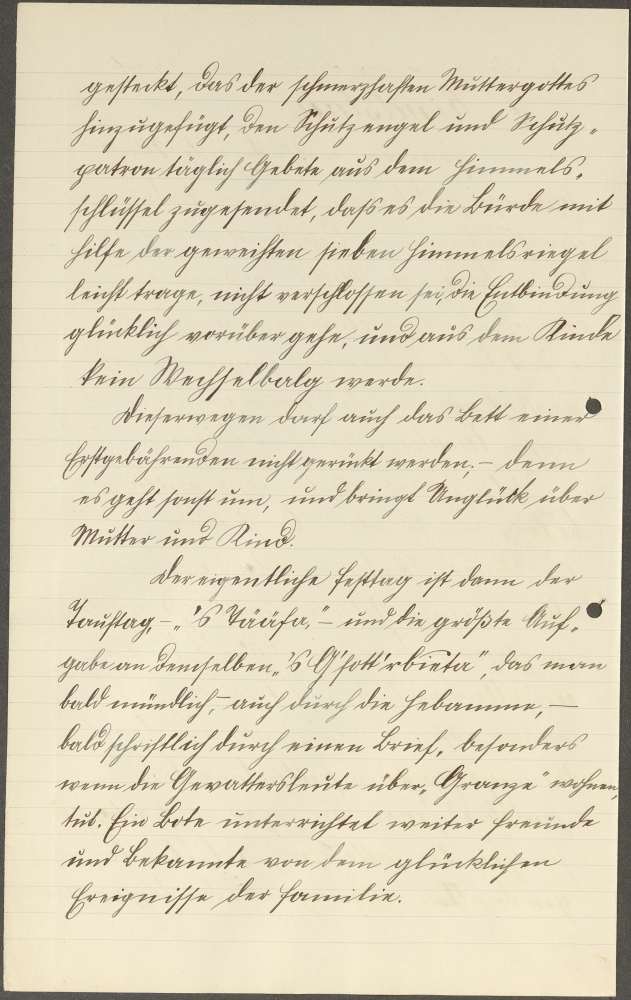 gesteckt, das der schmerzhaften Muttergottes
hinzugefügt, den Schutzengel und Schutz-
patron täglich Gebete aus dem Himmels-
schlüssel zugesendet, daß es die Bürde mit
Hilfe der geweihten sieben Himmelsriegel
leicht trage, nicht verschlossen sei, die Entbindung
glücklich vorüber gehe, und aus dem Kinde
kein Wechselbalg werde.
Dieserwegen darf auch das Bett einer
Erstgebährenden nicht gerückt werden; – denn
es geht sonst um, und bringt Unglück über
Mutter und Kind.
Der eigentliche Festtag ist dann der
Tauftag, – „'s Tääfa," – und die größte Auf-
gabe an demselben „'s G'fott'rbieta", das man
bald mündlich, auch durch die Hebamme, –
bald schriftlich durch einen Brief, besonders
wenn die Gevattersleute über „Granze" wohnen,
tut. Ein Bote unterrichtet weiter Freunde
und Bekannte von dem glücklichen
Ereignisse der Familie.